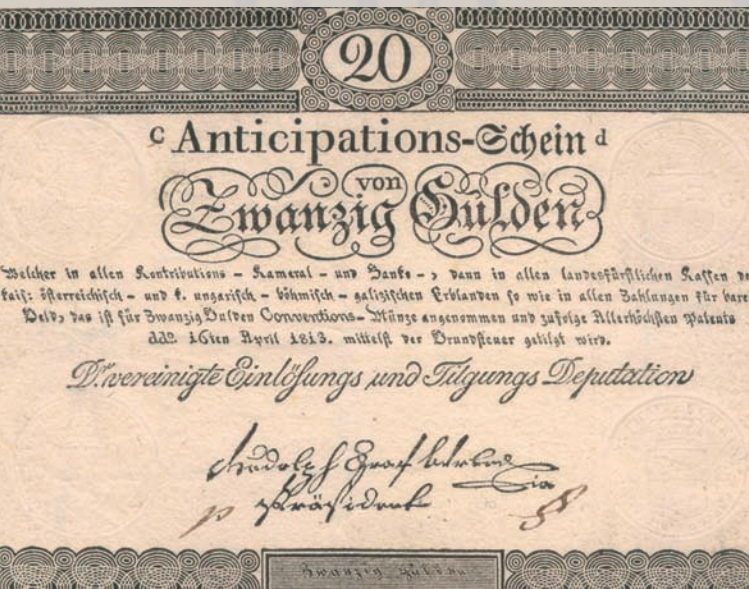 20
c Anticipations-Schein d
von
Zwanzig Gulden
Welcher in allen Kontributions - Kameral - und Banko -, dann in allen landesfürstlichen Kassen
kais: österreichisch - und k. ungarisch - böhmisch - galizischen Erblanden so wie in allen Zahlungen für bare
Geld, das ist für Zwanzig Gulden Conventions-Münze angenommen und zufolge Allerhöchsten Patents
ddo. 16ten April 1813. mittelst der Grundsteuer getilgt wird.
Dr. vereinigte Einlösungs und Tilgungs Deputation
Rudolph Graf
Präsident
Zwanzig Gulden